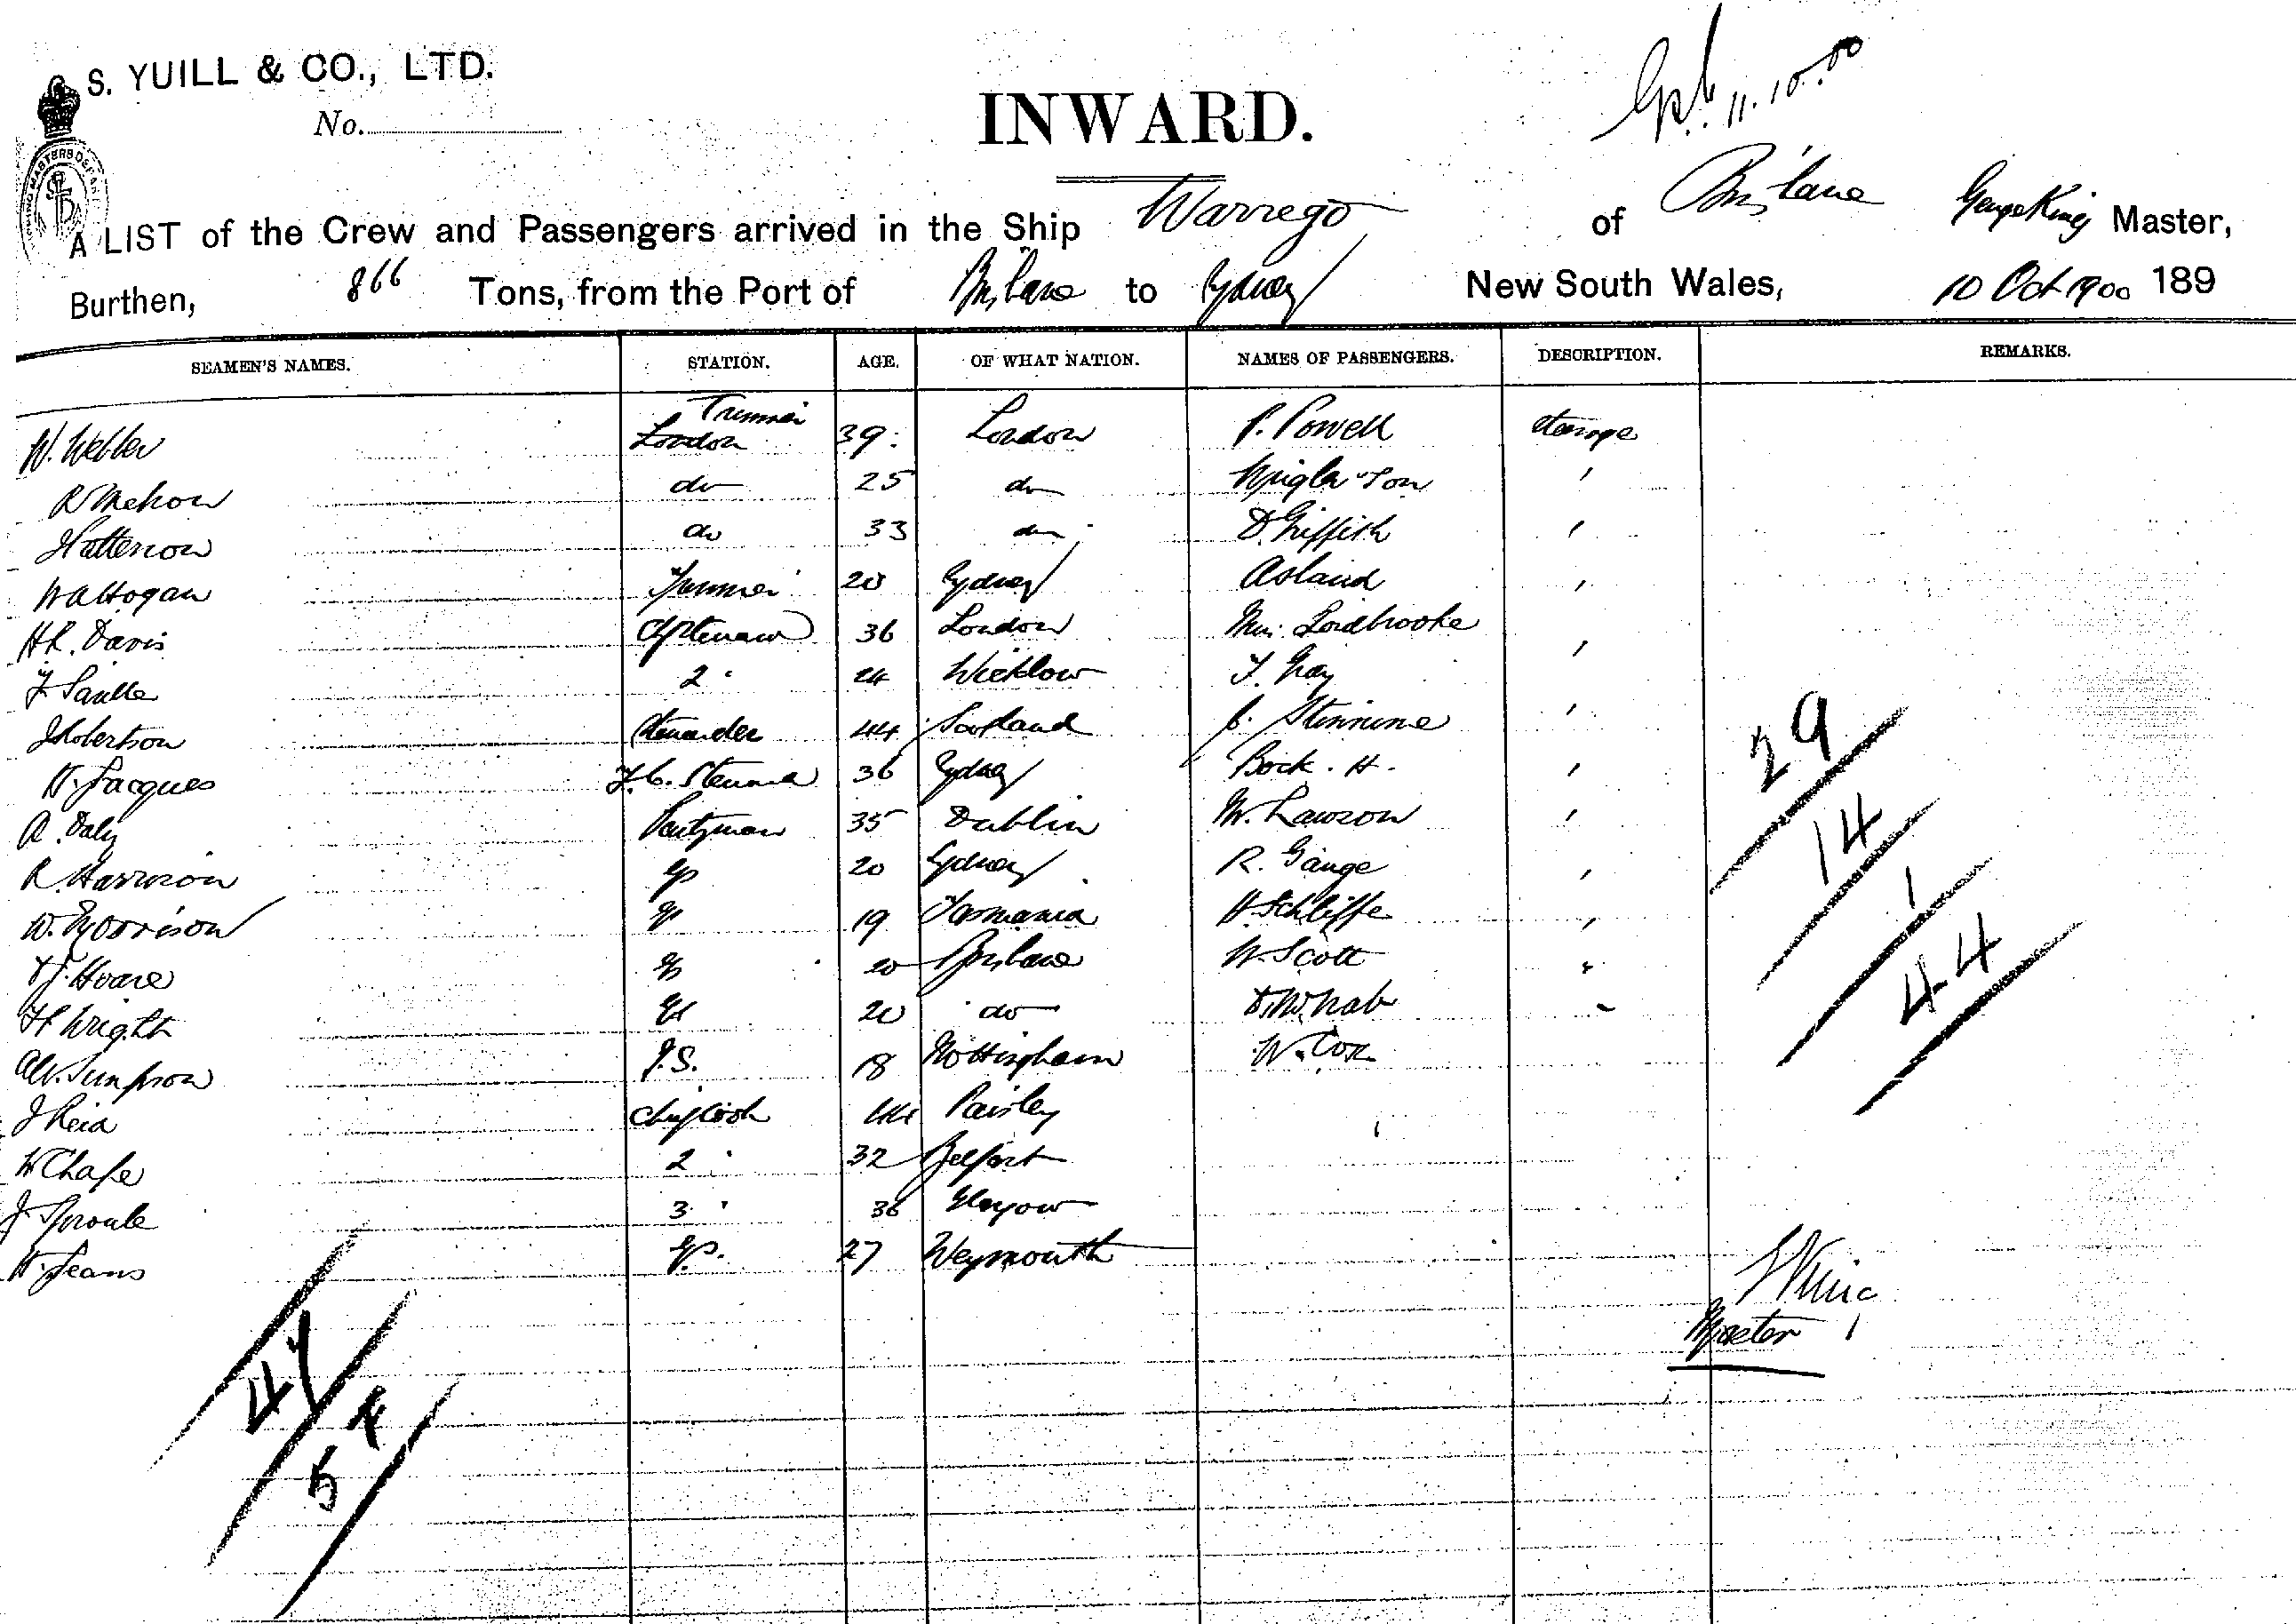 S. YUILL & CO., LTD.
No.
INWARD.
11.10.00
A LIST of the Crew and Passengers arrived in the Ship Warrego of Brisbane George King Master,
Burthen, 866 Tons, from the Port of Brisbane to Sydney New South Wales, 10 Oct 1900 189
SEAMEN'S NAMES. STATION. AGE. OF WHAT NATION. NAMES OF PASSENGERS. DESCRIPTION. REMARKS.
W. Webber Trimmer London 39 London P. Powell steerage
R Mehow do 25 do Wright & Son "
J Patterson do 33 do D. Griffith "
W A Hogan Trimmer 20 Sydney Asland "
H R. Davis Ch Steward 36 London Mrs. Lordbrooke "
F Saulle 2 " 24 Wicklow F. Gray
J Robertson Stewardess 44 Scotland J. Stimmime "
H. Jacques F. C. Steward 36 Sydney Bock. H. "
R. Daly Pantryman 35 Dublin W. Lawson "
R. Harrison GS 20 Sydney R. Gange "
W. Morrison GS 19 Tasmania H Schliffe "
T J. Hoare GS 20 Brisbane W Scott "
H Wright GS 20 do D. McNab "
A W. Simpson P.S. 18 Nottingham W. Cox
J Reid Chief Cook 44 Paisley
W Chape 2 " 32 Belfast
J Sproule 3 " 36 Glasgow
H. Jeans GS. 27 Weymouth
29
14
1
44
G King
Master